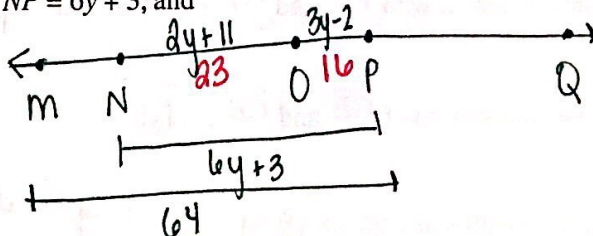 NP = 6y + 3, and
2y+11 3y-2
23 16
M N O P Q
6y+3
64